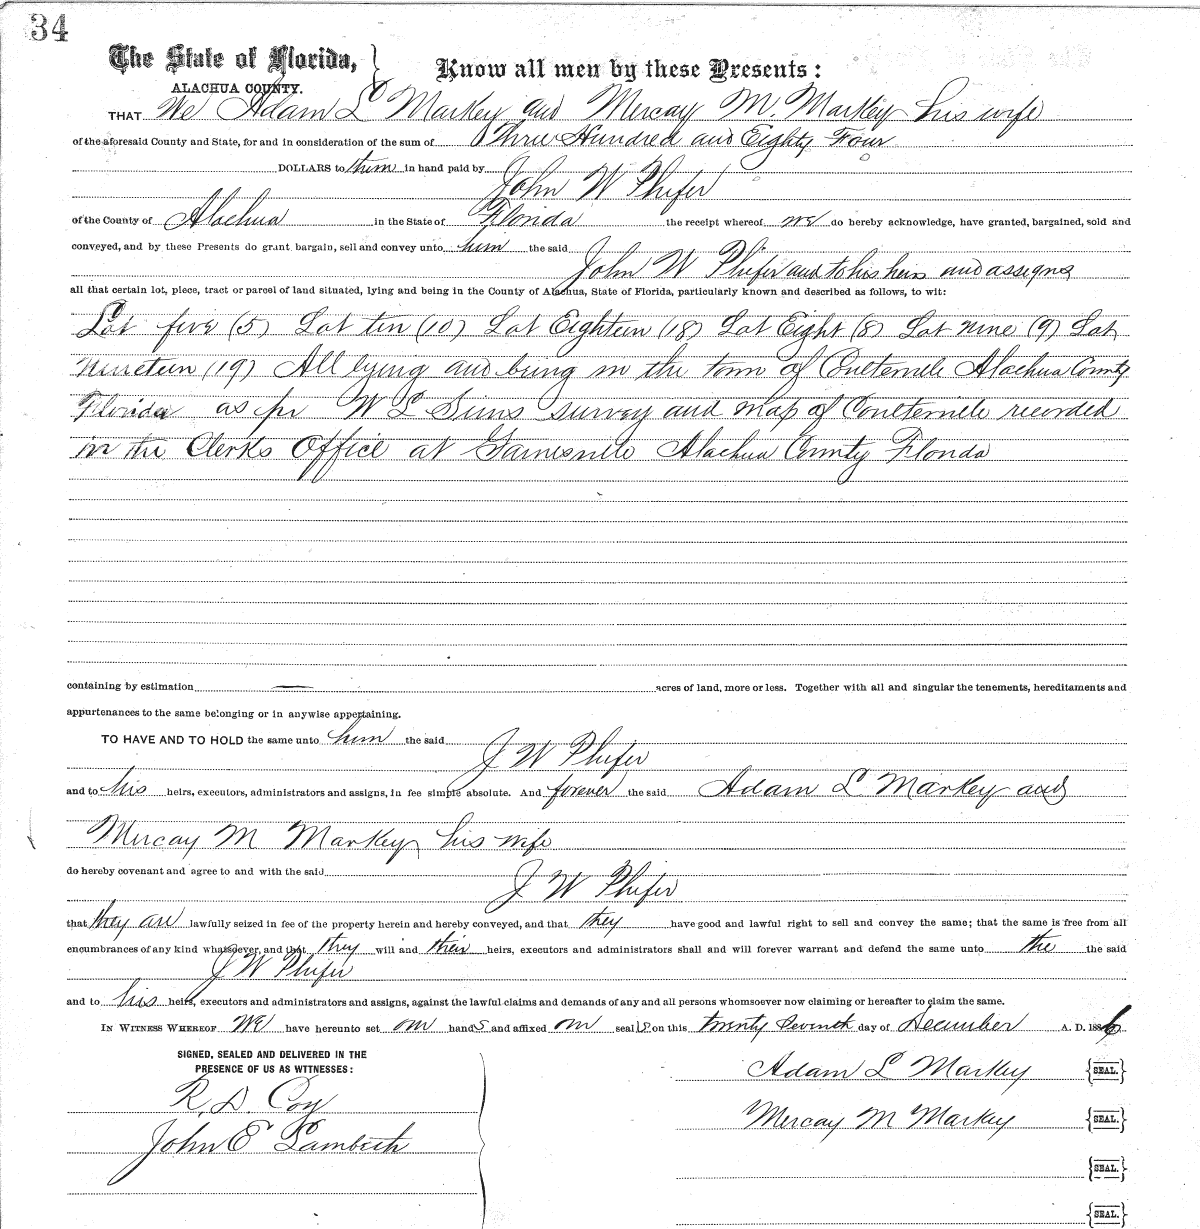 34
The State of Florida, } Know all men by these Presents:
ALACHUA COUNTY.
THAT We Adam L Markey and Mercay M. Markey his wife
of the aforesaid County and State, for and in consideration of the sum of Three Hundred and Eighty Four
DOLLARS to them in hand paid by
John W Phifer
of the County of Alachua in the State of Florida the receipt whereof we do hereby acknowledge, have granted, bargained, sold and
conveyed, and by these Presents do grant bargain, sell and convey unto him the said
John W Phifer and to his heirs and assigns
all that certain lot, piece, tract or parcel of land situated, lying and being in the County of Alachua, State of Florida, particularly known and described as follows, to wit:
Lot five (5) Lot ten (10) Lot Eighteen (18) Lot Eight (8) Lot nine (9) Lot
Nineteen (19) All lying and being in the town of Coulterville Alachua County
Florida as per W L Sims survey and map of Coulterville recorded
in the Clerks Office at Gainesville Alachua County Florida
containing by estimation — acres of land, more or less. Together with all and singular the tenements, hereditaments and
appurtenances to the same belonging or in anywise appertaining.
TO HAVE AND TO HOLD the same unto him the said
J W Phifer
and to his heirs, executors, administrators and assigns, in fee simple absolute. And forever the said Adam L Markey and
Mercay M Markey his wife
do hereby covenant and agree to and with the said
J W Phifer
that they are lawfully seized in fee of the property herein and hereby conveyed, and that they have good and lawful right to sell and convey the same; that the same is free from all
encumbrances of any kind whatsoever, and that they will and their heirs, executors and administrators shall and will forever warrant and defend the same unto the the said
J W Phifer
and to his heirs, executors and administrators and assigns, against the lawful claims and demands of any and all persons whomsoever now claiming or hereafter to claim the same.
IN WITNESS WHEREOF We have hereunto set our hands and affixed our seals on this twenty Seventh day of December A. D. 1886
SIGNED, SEALED AND DELIVERED IN THE
PRESENCE OF US AS WITNESSES:
Adam L Markey {SEAL.}
R. D. Coy
Mercay M Markey {SEAL.}
John E Lambeth
{SEAL.}
{SEAL.}